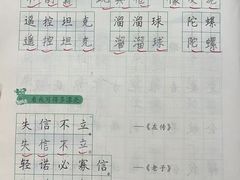 遥控坦克 溜溜球 陀螺
遥控坦克 溜溜球 陀螺
看我写得多漂亮
失信不立 ——《左传》
失信不立
轻诺必寡信 ——《老子》